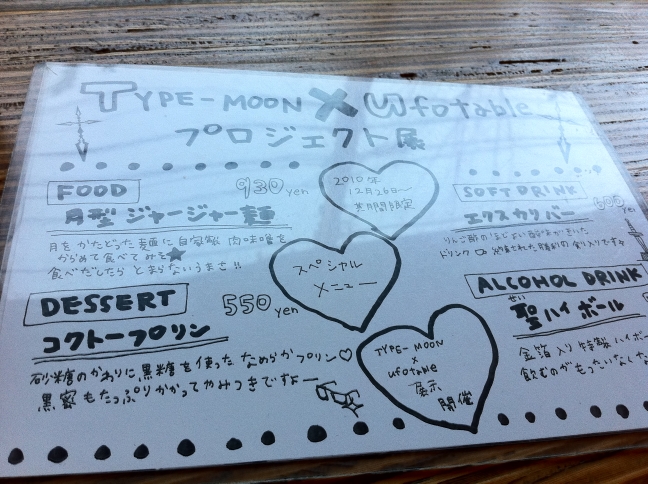 TYPE-MOON × Ufotable
プロジェクト展
FOOD
930 yen
月型 ジャージャー麺
月をかたどった麺に自家製 肉味噌を
からめて食べてみて★
食べだしたら とまらないうまさ!!
DESSERT
550 yen
コクトープリン
砂糖のかわりに黒糖を使った なめらかプリン♡
黒蜜もたっぷりかかってやみつきですよー
2010年
12月26日〜
期間限定
スペシャル
メニュー
TYPE-MOON
×
ufotable
展示
開催
SOFT DRINK
600 yen
エクスカリバー
りんご酢の
ドリンク
ALCOHOL DRINK
せい
聖ハイボール
金箔入り特製ハイボー
飲むのがもったいない